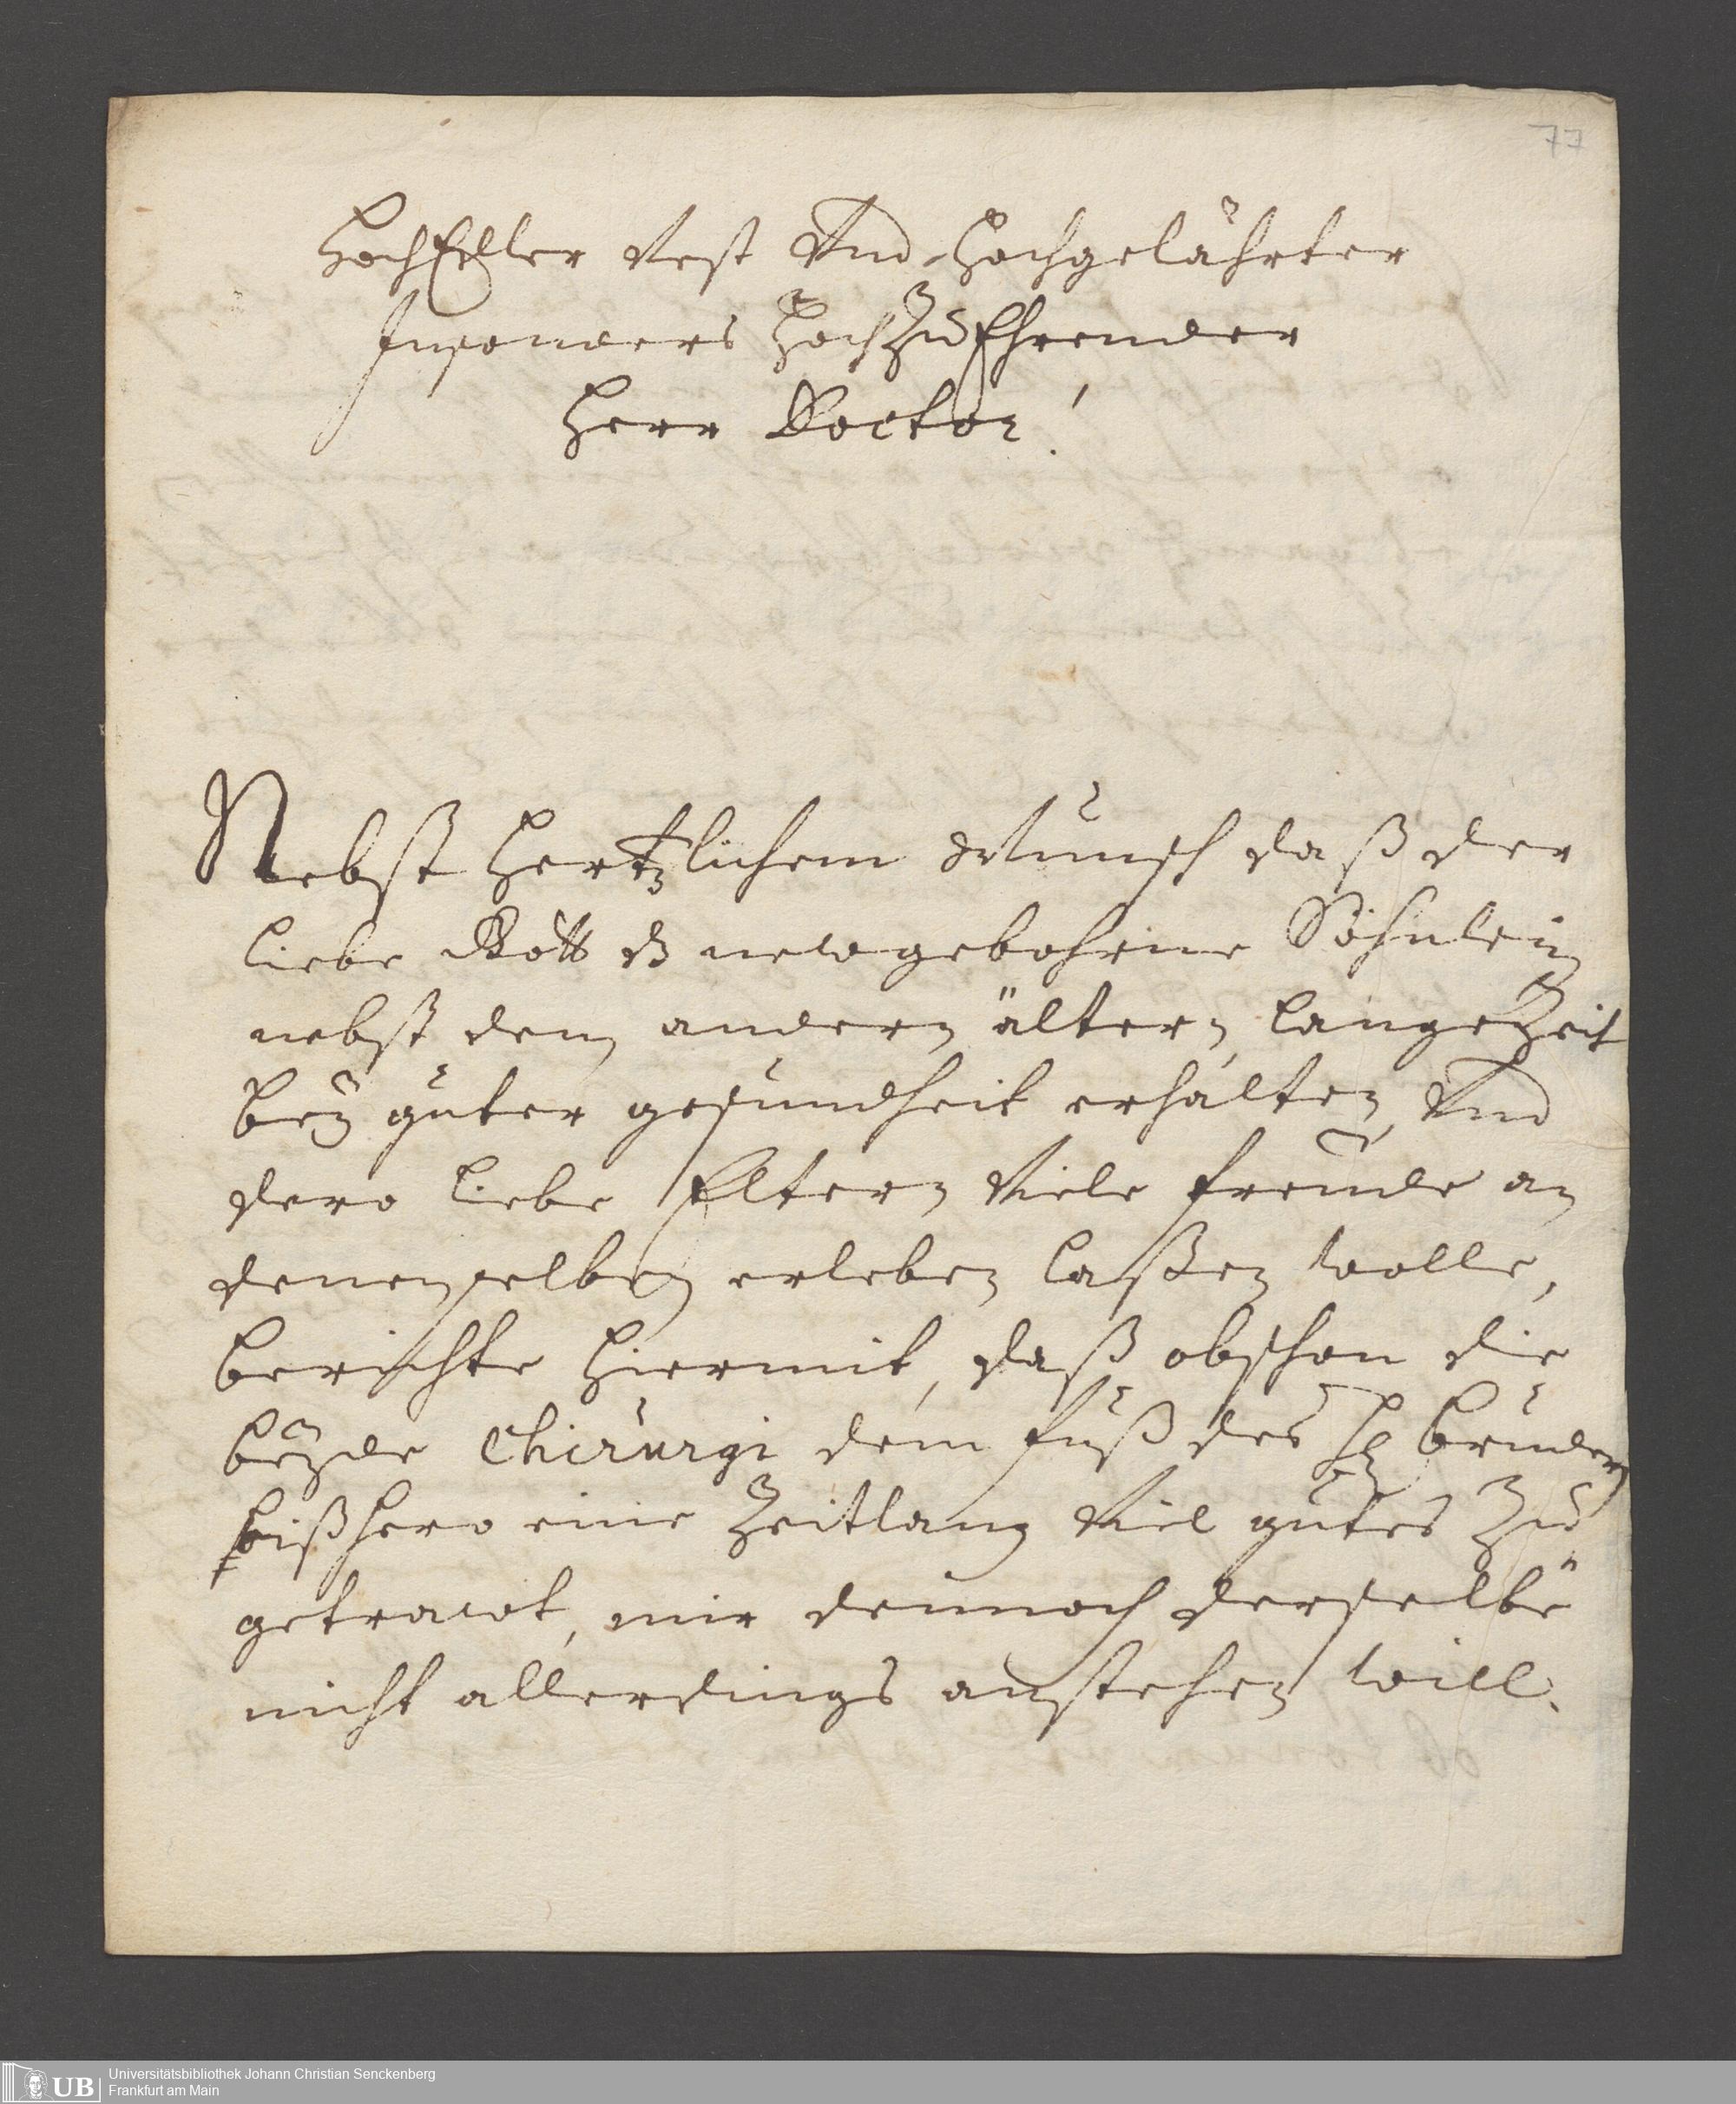 77
HochEdler Vest Vnd Hochgelährter
Insonders HochZuEhrender
Herr Doctor!
Nebst Hertzlichem Wunsch daß der
Liebe Gott ds newgebohrne Söhnlein
nebst dem andern ältern, lange Zeit
beÿ guter gesundheit erhalten, Vnd
dero Liebe Eltern Viele freude an
denenselben erleben Laßen wolle,
Berichte Hiermit, daß obschon die
beÿde Chirurgi dem fuß des H Bruders
bißhero eine Zeitlang Viel gutes Zu
getrawt, mir dennoch derselbe
nicht allerdings anstehen will.
UB
Universitätsbibliothek Johann Christian Senckenberg
Frankfurt am Main